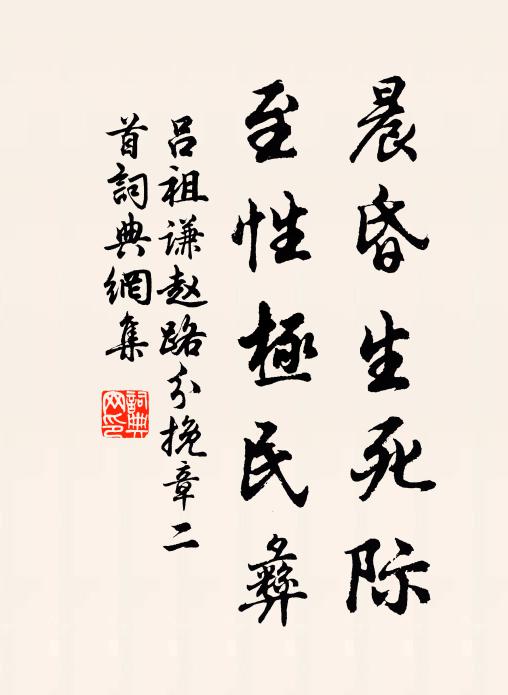 晨昏生死际
至性極民彝
吕祖谦赵路分挽章二
首詞典網集
詞典网印